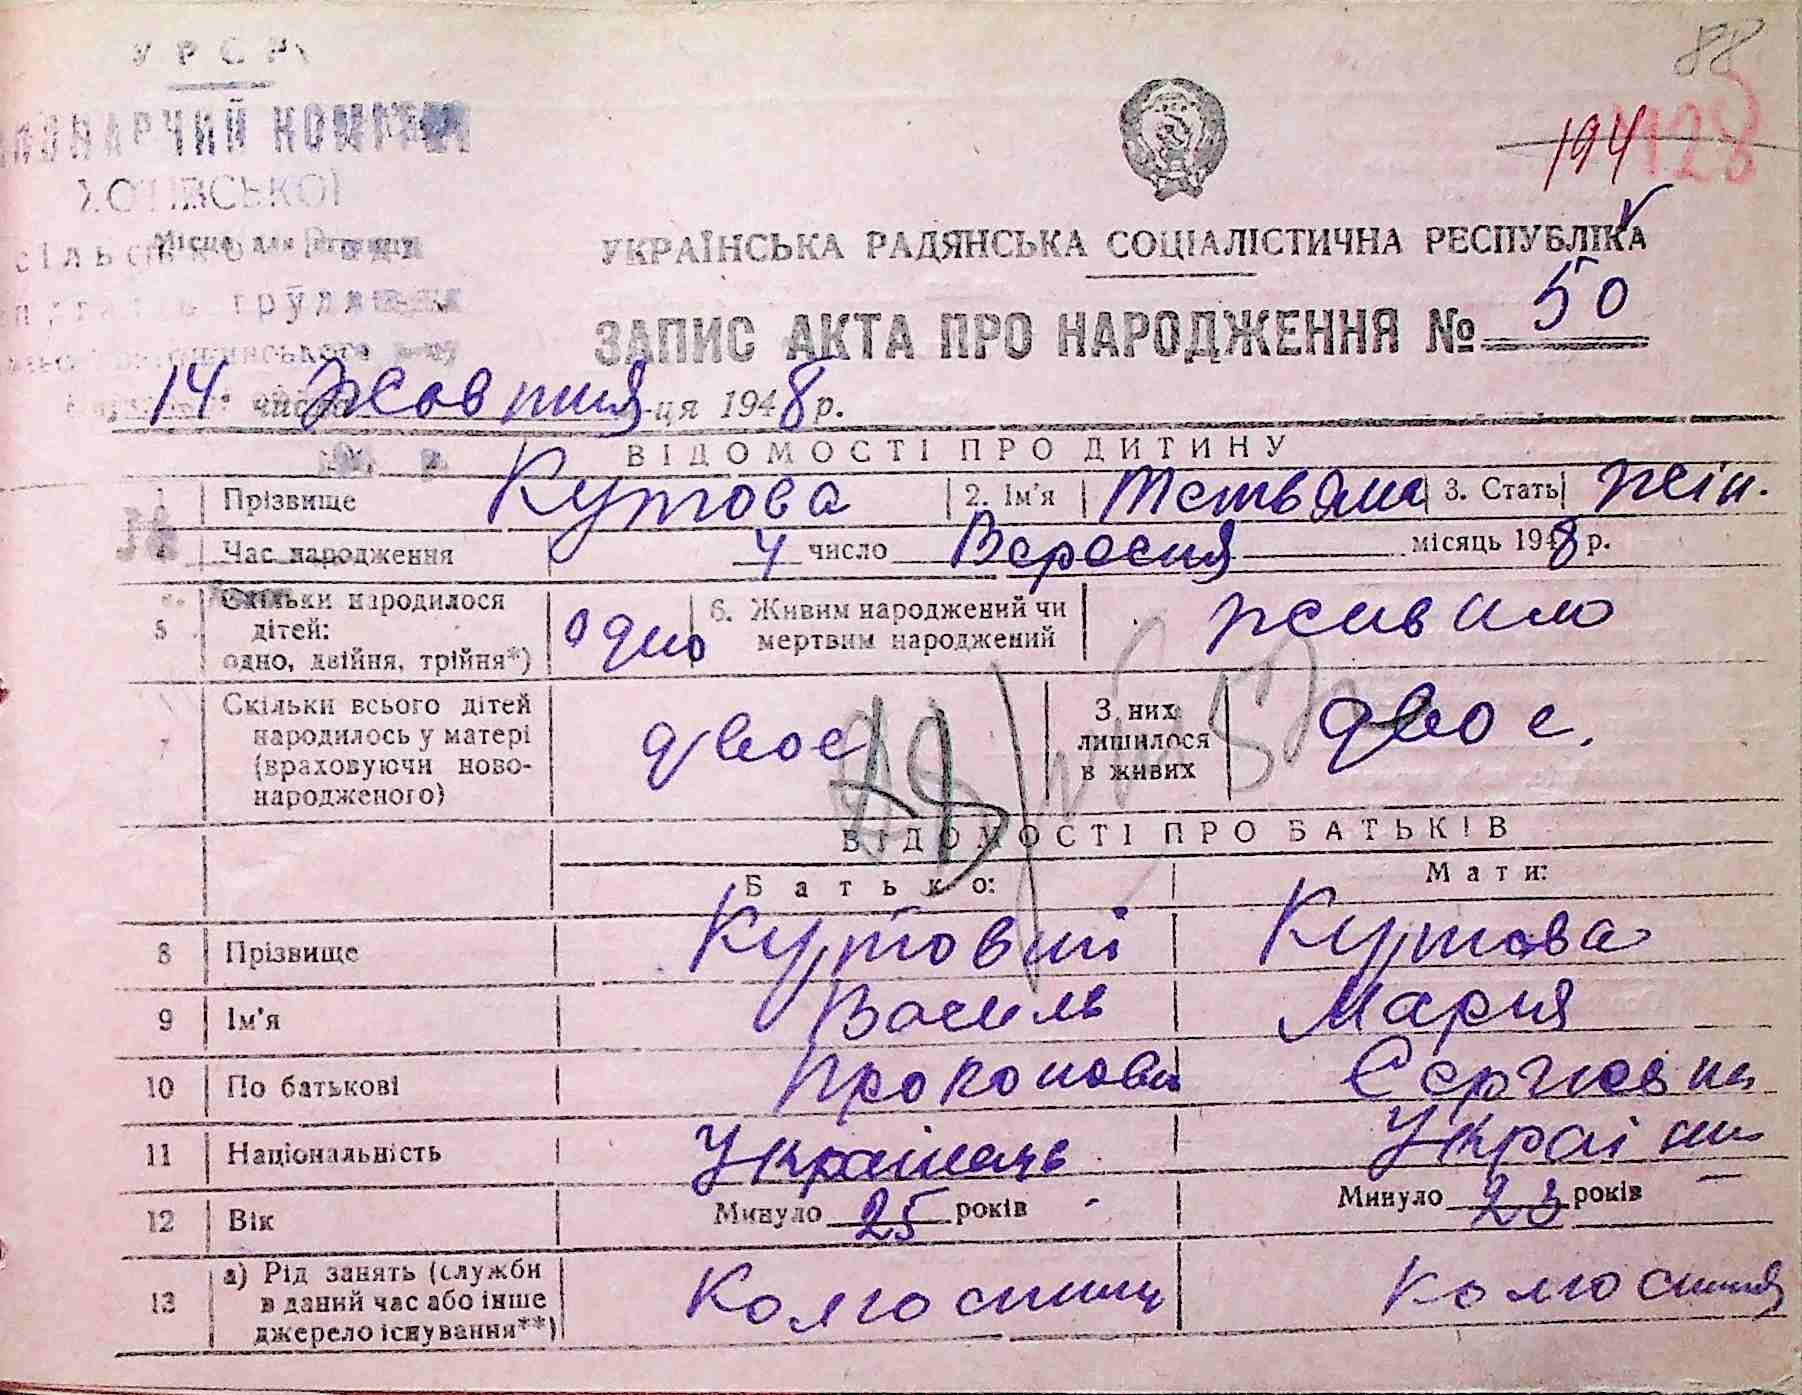 У Р С Р
КОМІТЕТ
88
194 128
ХОТІВСЬКОЇ
Місце для
УКРАЇНСЬКА РАДЯНСЬКА СОЦІАЛІСТИЧНА РЕСПУБЛІКА
ЗАПИС АКТА ПРО НАРОДЖЕННЯ № 50
14 жовтня ця 1948 р.
ВІДОМОСТІ ПРО ДИТИНУ
1 Прізвище Кутова 2. Ім'я Тетьяна 3. Стать жін.
Час народження 4 число Вересня місяць 1948 р.
5 Скільки народилося дітей: одно, двійня, трійня*) одно 6. Живим народжений чи мертвим народжений живим
7 Скільки всього дітей народилось у матері (враховуючи новонародженого) двоє З них лишилося в живих двоє.
ВІДОМОСТІ ПРО БАТЬКІВ
Батько: Мати:
8 Прізвище Кутовий Кутова
9 Ім'я Василь Мария
10 По батькові Прокопови Сергіевна
11 Національність Українець Україн
12 Вік Минуло 25 років Минуло 23 років
13 а) Рід занять (служби в даний час або інше джерело існування**) Колгоспник Колгоспниця